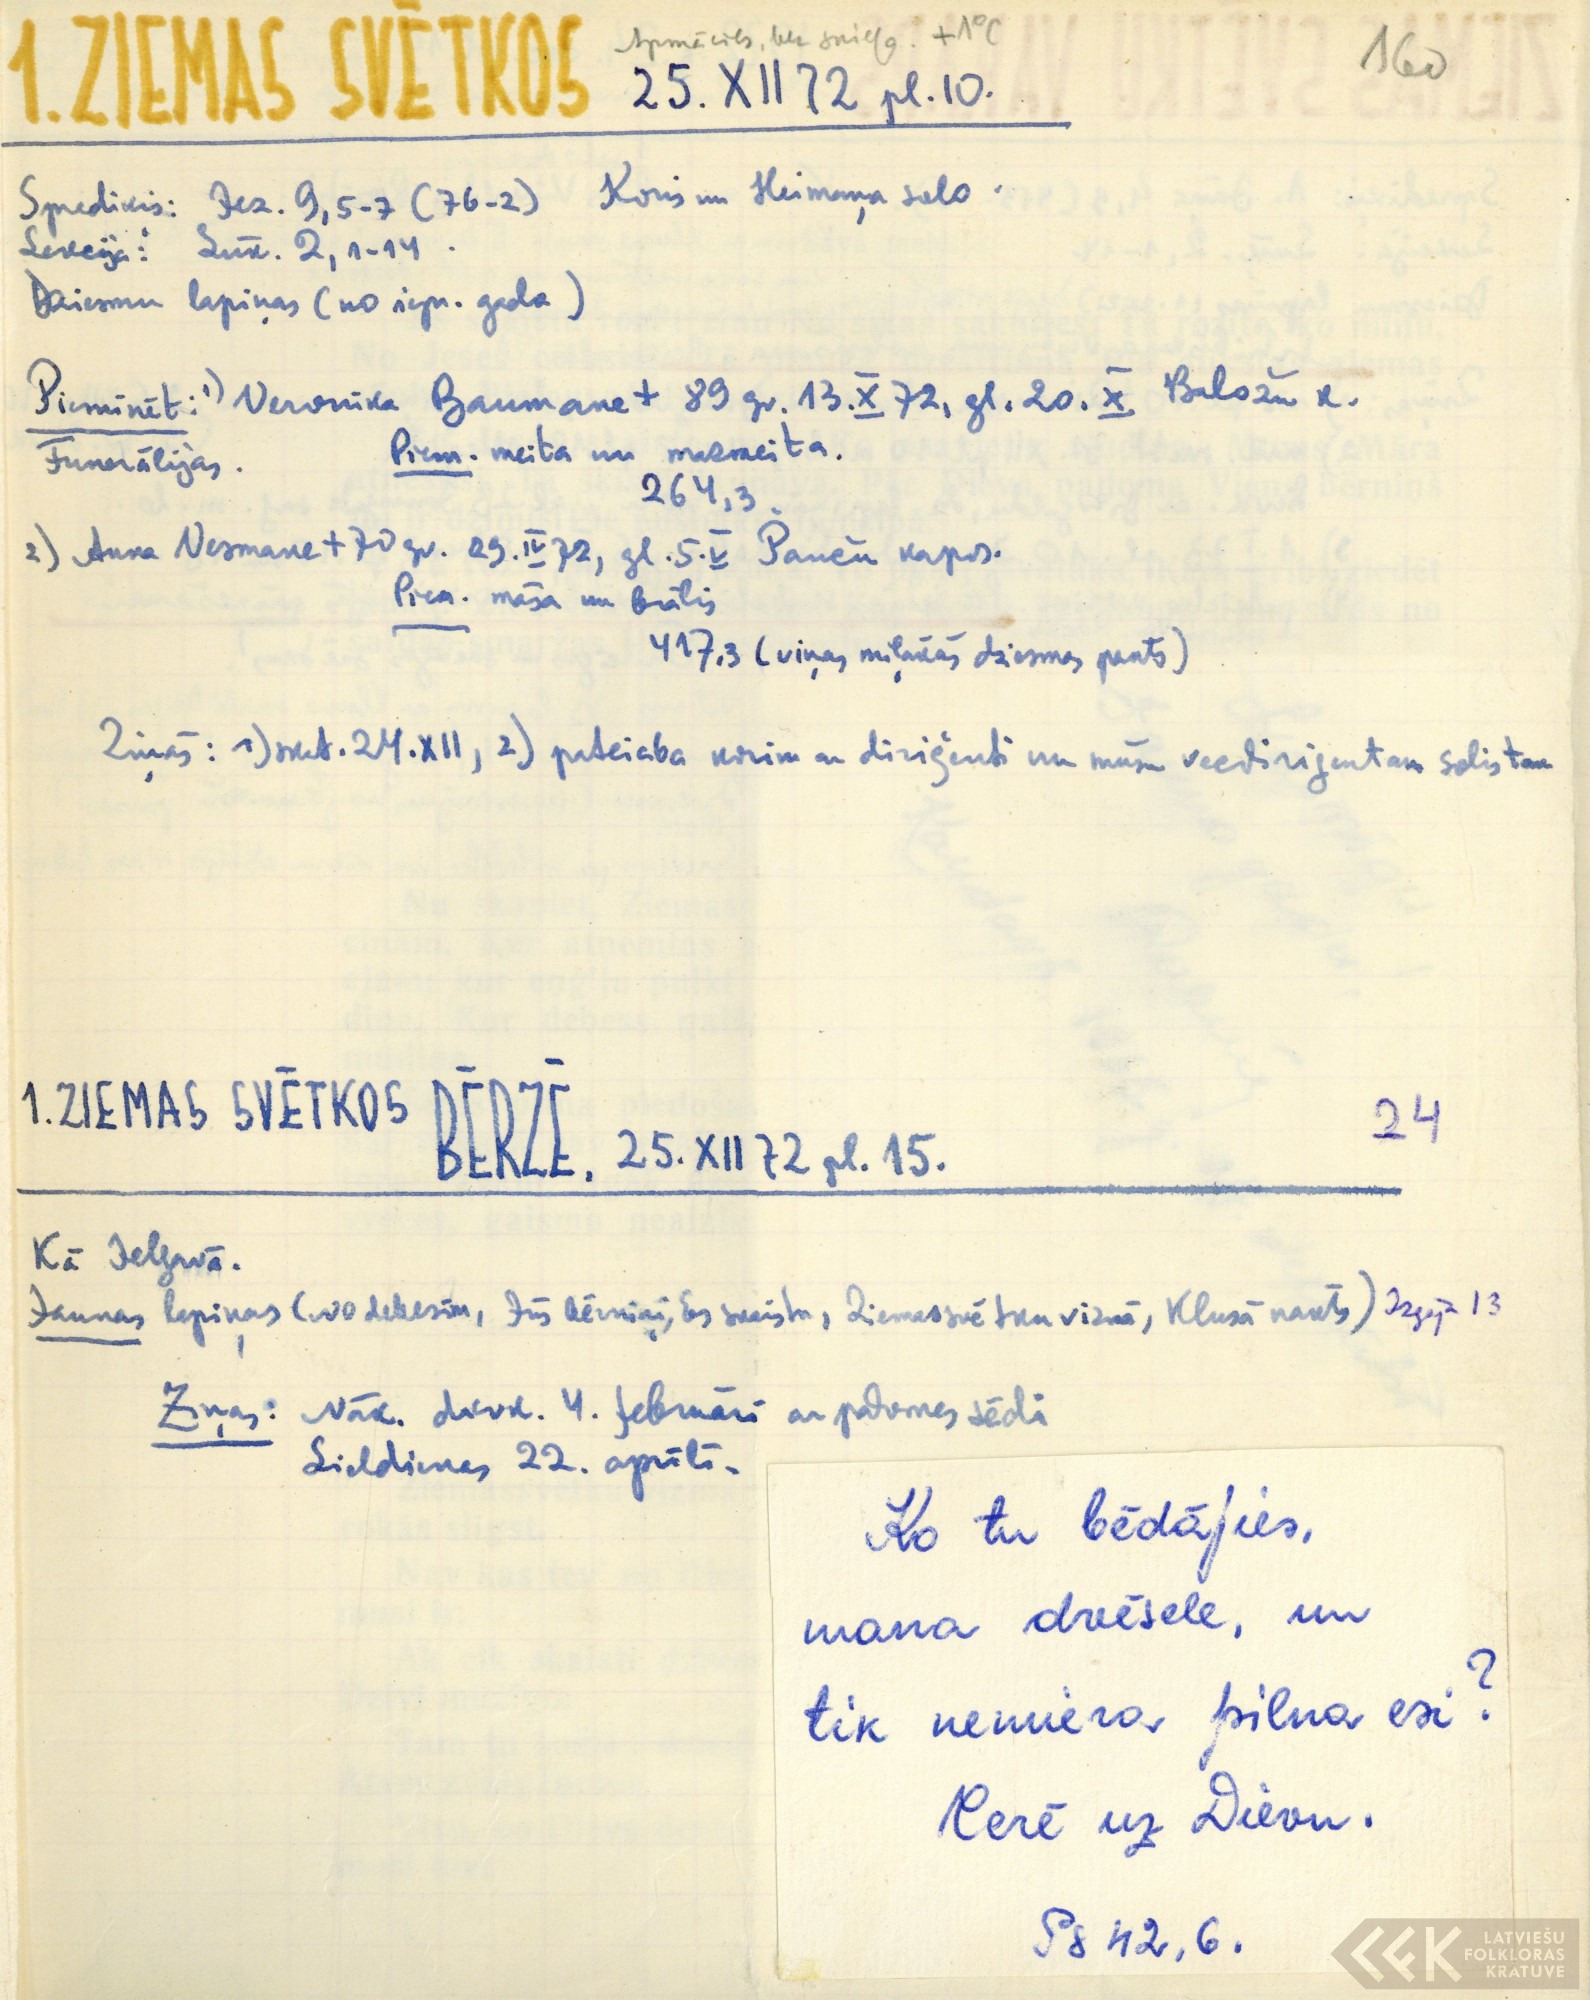 Apmācies, bez sniega. +1°C
160
1. ZIEMAS SVĒTKOS 25. XII 72 pl. 10.
Sprediķis: Jez. 9, 5-7 (76-2) Koris un Heimaņa solo.
Lekcija: Lūk. 2, 1-14.
Dziesmu lapiņas (no iepr. gada)
Pieminēt: 1) Veronika Baumane + 89 gv. 13. X 72, gl. 20. X Baložu k.
Funerālijas. Piem. meita un mazmeita.
264,3.
2) Anna Nesmane + 70 gv. 29. IV 72, gl. 5. V Pančū kapos.
Piem. māsa un brālis
417,3 (viņas mīļākās dziesmas pants)
Ziņās: 1) skat. 24. XII, 2) pateicība korim ar diriģenti un mūsu vecdiriģentam solistam
1. ZIEMAS SVĒTKOS BĒRZĒ, 25. XII 72 pl. 15.
24
Kā Jelgavā.
Jaunas lapiņas (No debesīm, Jūs bērniņi, Es skaistu, Ziemassvētku vizmā, Klusā nakts) Izgāja 13
Ziņas: Nāk. dievk. 4. februārī ar padomes sēdi
Lieldienas 22. aprīlī.
Ko tu bēdājies,
mana dvēsele, un
tik nemiera pilna esi?
Cerē uz Dievu.
Ps 42, 6.
LATVIEŠU
FOLKLORAS
KRATUVE